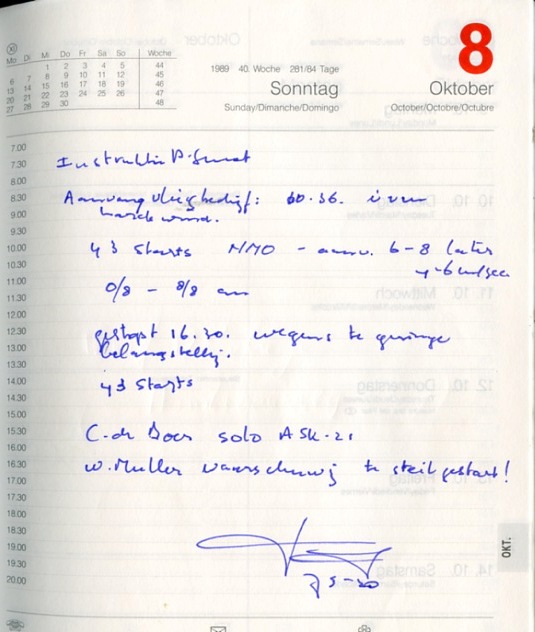 8
XI
Mo Di Mi Do Fr Sa So Woche
1 2 3 4 5 44
6 7 8 9 10 11 12 45
13 14 15 16 17 18 19 46
20 21 22 23 24 25 26 47
27 28 29 30 48
1989 40. Woche 281/84 Tage
Sonntag
Sunday/Dimanche/Domingo
Oktober
October/Octobre/Octubre
7.00
7.30 Instructie P.
8.00
8.30 Aanvang vliegbedrijf: 10.36. i.v.m
9.00 harde wind.
9.30
10.00 43 starts NNO - 6-8 later
10.30 4-6 m/sec
11.00
11.30 0/8 - 8/8
12.00
12.30 gestopt 16.30. wegens te geringe
13.00 belangstelling.
13.30
14.00 43 starts
14.30
15.00
15.30 C. de Boer solo ASK-21
16.00
16.30 W. Muller waarschuwing te steil gestart!
17.00
17.30
18.00
18.30
19.00
19.30
20.00
OKT.